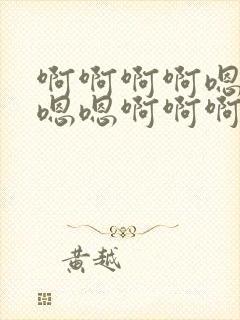 啊啊啊啊嗯
嗯嗯啊啊啊
黄越